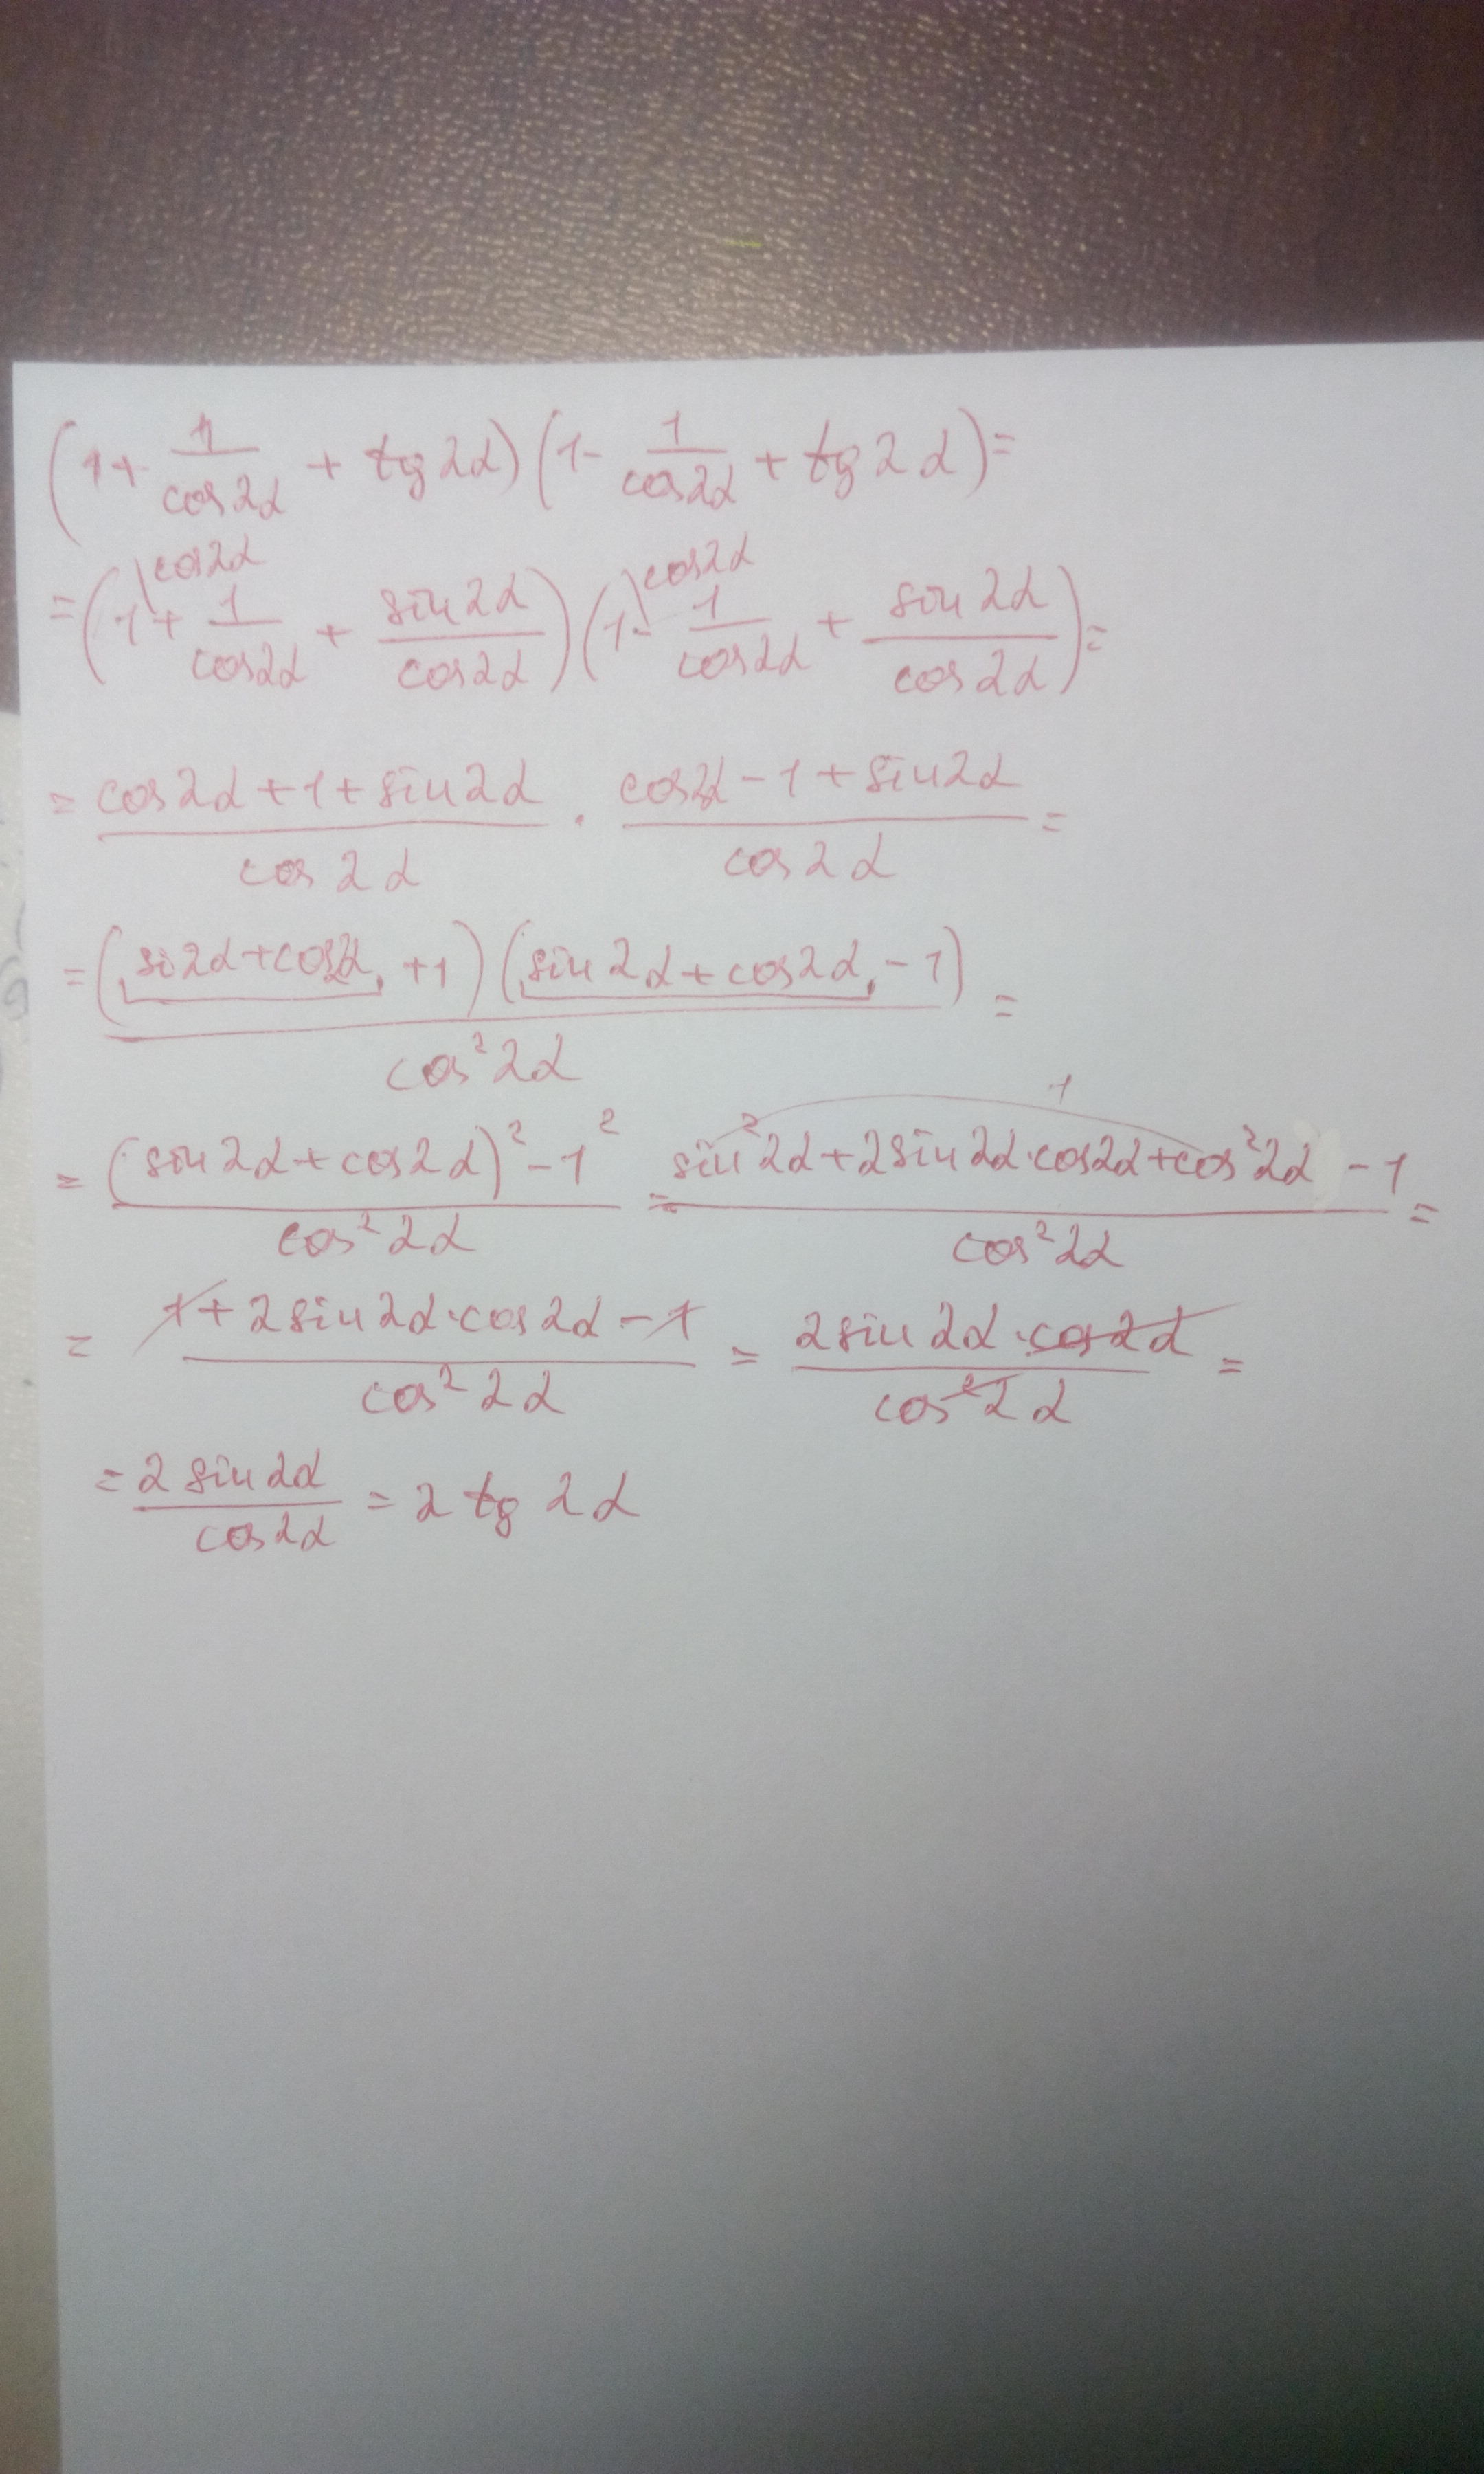 (1 + 1/cos2α + tg2α)(1 - 1/cos2α + tg2α) =
= (1\cos2α + 1/cos2α + sin2α/cos2α)(1\cos2α - 1/cos2α + sin2α/cos2α) =
= (cos2α + 1 + sin2α)/cos2α · (cos2α - 1 + sin2α)/cos2α =
= (si2α + cos2α + 1)(sin2α + cos2α - 1)/cos²2α =
= ((sin2α + cos2α)² - 1²)/cos²2α = (sin²2α + 2sin2α·cos2α + cos²2α - 1)/cos²2α =
1
= (1 + 2sin2α·cos2α - 1)/cos²2α = (2sin2α·cos2α)/cos²2α =
= 2sin2α/cos2α = 2tg2α